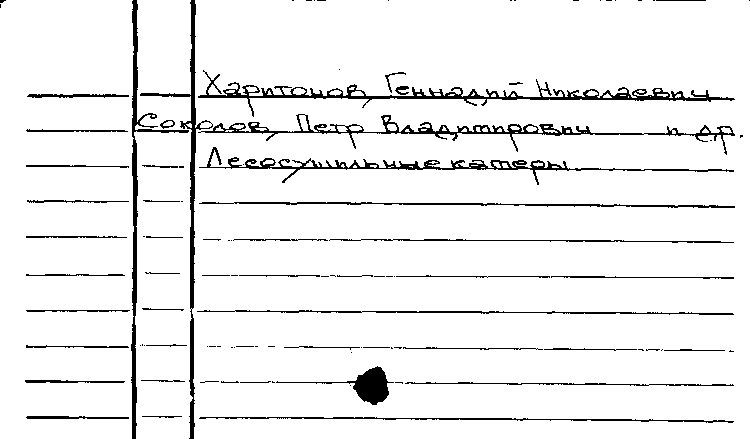 Харитонов, Геннадий Николаевич
Соколов, Петр Владимирович и др.
Лесосушильные катеры.